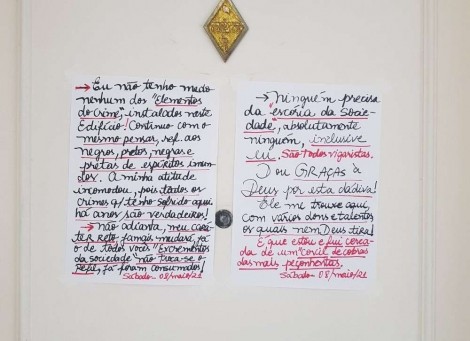 → Eu não tenho medo
nenhum dos "Elementos
do Crime", instalados neste
Edifício! Continuo com o
mesmo pensar, ref. aos
negros, pretos, negras e
pretas de espíritos imun-
dos. A minha atitude
incomodou, pois todos os
crimes q/ tenho sofrido aqui
há anos são verdadeiros!
→ não adianta, meu cará-
teR Reto jamais mudará, já
o de todos voces "Excrementos
da sociedade" não troca-se o
Refil, já foram consumados!
Sábado 08/maio/21
→ Ninguém precisa
da "escória da socie-
dade", absolutamente
ninguém, inclusive
eu. São todos vigaristas.
Dou GRAÇAS à
Deus por esta dádiva!
Ele me trouxe aqui,
com vários dons e talentos
os quais nem Deus tira!
É que estou e fui cerca-
da de um "covil de cobras
das mais peçonhentas.
Sábado 08/maio/21